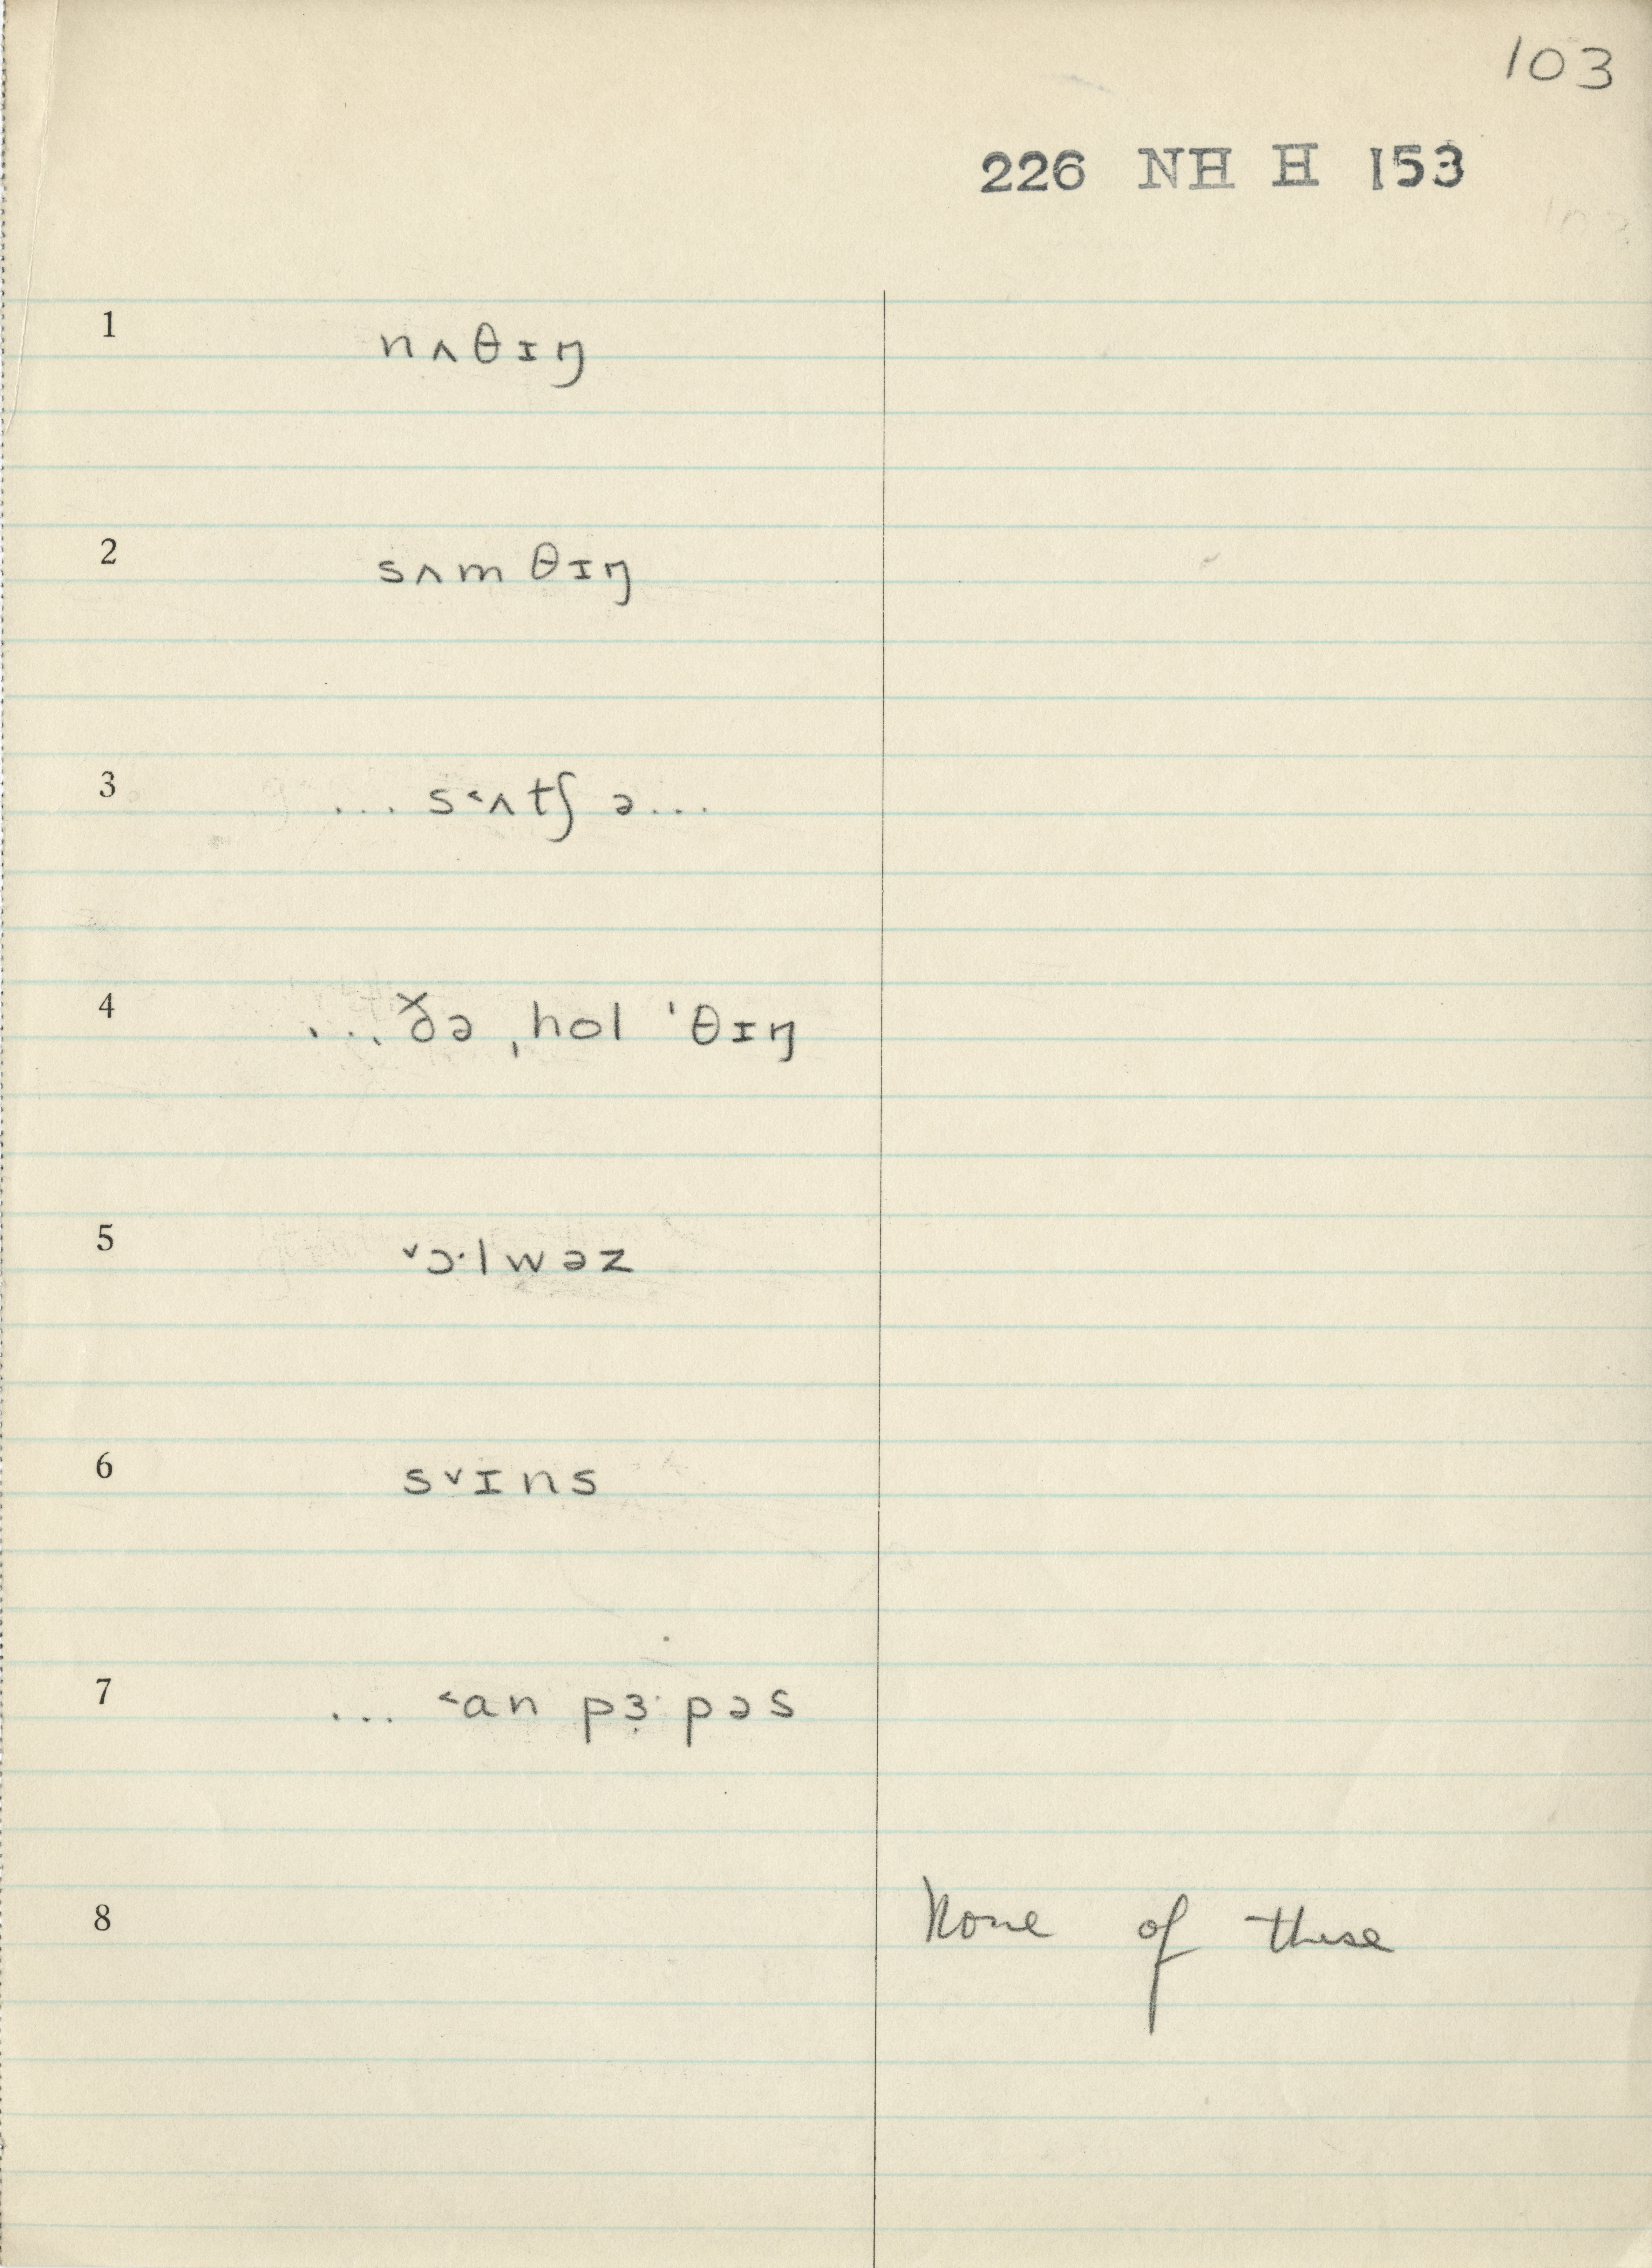 103
226 NH H 153
1 nʌθɪŋ
2 sʌm θɪŋ
3 ... s˂ʌtʃ ə...
4 ... ðə ˌhol ˈθɪŋ
5 ˅ɔ·lwəz
6 s˅ɪns
7 ... ˂an pɜ̣· pəs
8 None of these